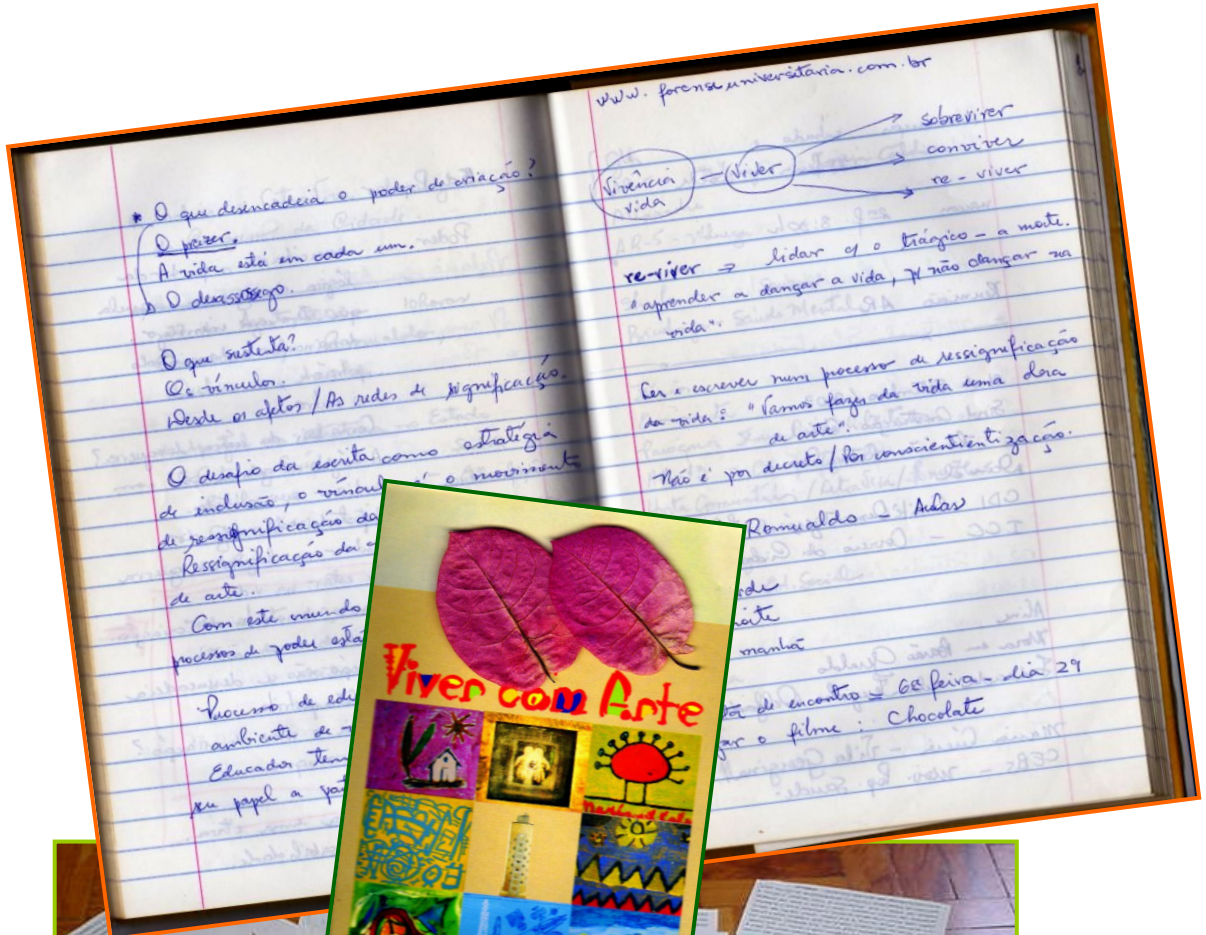 * O que desencadeia o poder de criação?
O prazer.
A vida está em cada um.
O desassossego.
O que sustenta?
Os vínculos.
Desde os afetos / As redes de significação.
O desafio da escrita como estratégia
de inclusão, o vínculo é o movimento
de ressignificação da
Ressignificação da
de arte.
Com este mundo
processos de poder está
Processo de edu
ambiente de
Educador tem
seu papel a par
www.forenseuniversitaria.com.br
Vivência
vida
— Viver
sobreviver
conviver
re-viver
re-viver → lidar c/ o trágico – a morte.
"aprender a dançar a vida, p/ não dançar na
vida".
Ler e escrever num processo de ressignificação
da vida: "Vamos fazer da vida uma obra
de arte".
Não é por decreto / Por conscientientização.
Romualdo – Aulas
rde
oite
manhã
de encontro = 6ª feira – dia 29
ar o filme: Chocolate
Viver com Arte